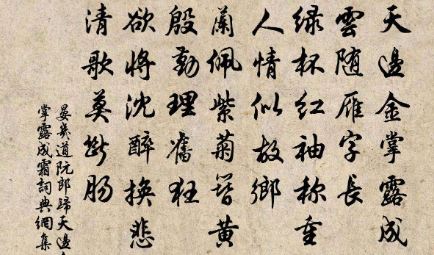 天邊金掌露成
雲随雁字長
绿杯红袖称重
人情似故鄉
蘭佩紫菊簪黄
殷勤理舊狂
欲将沈醉換悲
清歌莫断肠
晏幾道阮郎歸天邊
掌露成霜詞典網集